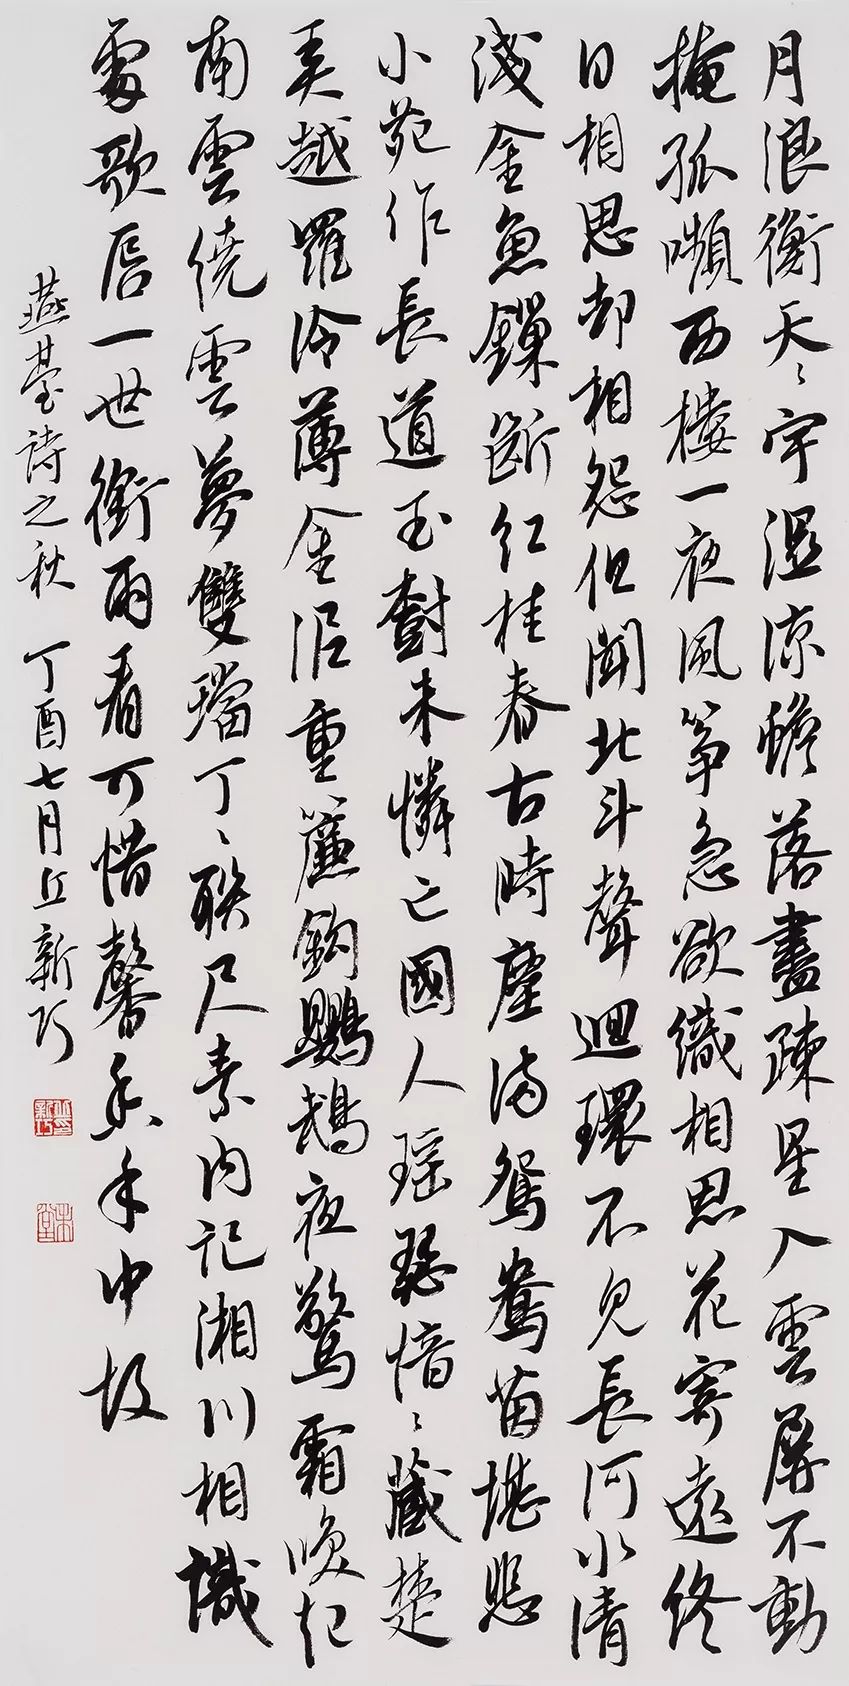 月浪衡天〻宇濕涼蟾落盡疎星入雲屏不動
掩孤嚬西樓一夜風箏急欲織相思花寄遠終
日相思却相怨但聞北斗聲迴環不見長河水清
淺金魚鏁斷紅桂春古時塵滿鴛鴦茵堪悲
小苑作長道玉樹未憐亡國人瑤瑟愔〻藏楚
弄越羅冷薄金泥重簾鉤鸚鵡夜驚霜喚起
南雲繞雲夢雙璫丁〻聯尺素內記湘川相識
處歌唇一世銜雨看可惜馨香手中故
燕臺詩之秋 丁酉七月丘新巧